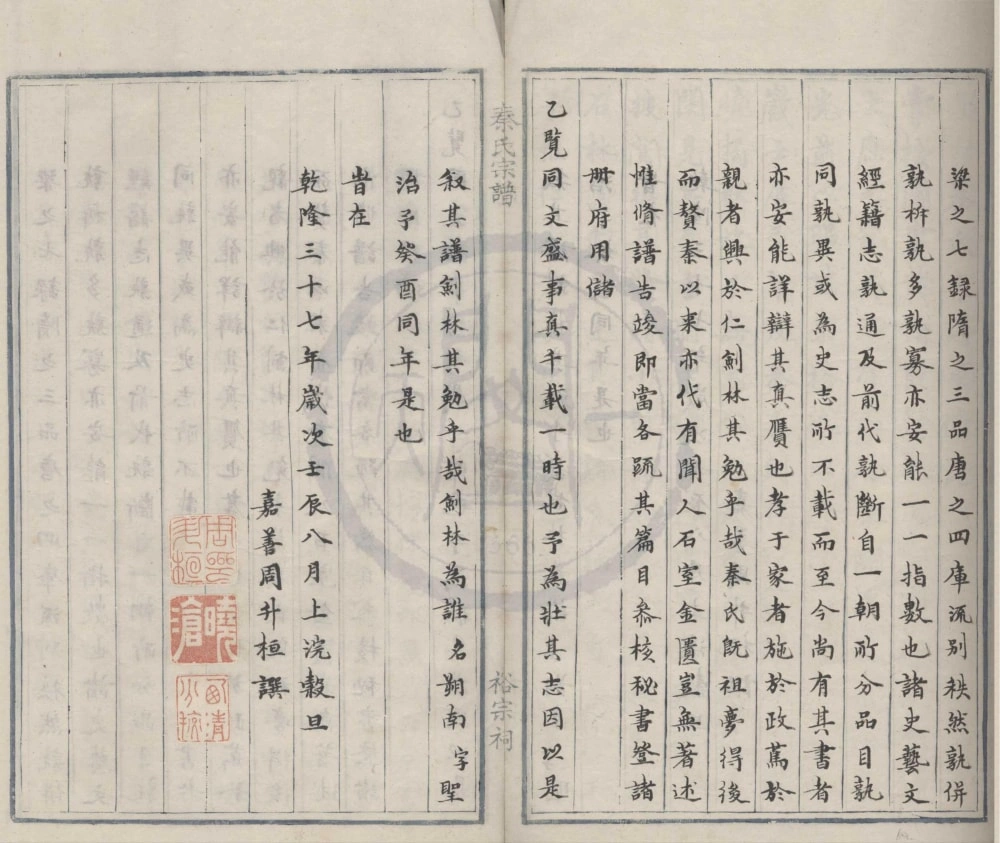 梁之七録隋之三品唐之四庫流別秩然孰併
孰析孰多孰寡亦安能一一指數也諸史藝文
經籍志孰通及前代孰斷自一朝所分品目孰
同孰異或為史志所不載而至今尚有其書者
亦安能詳辯其真贋也孝于家者施於政萬於
親者興於仁劍林其勉乎哉秦氏旣祖夢得後
而贅秦以来亦代有聞人石室金匱豈無著述
惟脩譜告竣即當各䟽其篇目叅核秘書登諸
册府用儲
乙覽同文盛事真千載一時也予為壯其志因以是
秦氏宗譜
裕宗祠
叙其譜劍林其勉乎哉劍林為誰名朔南字聖
治予癸酉同年是也
旹在
乾隆三十七年歲次壬辰八月上浣穀旦
嘉善周升桓譔
曉滄